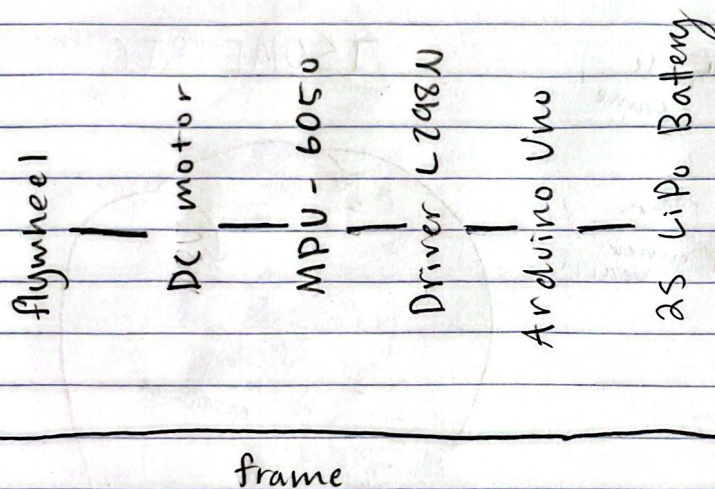 flywheel
DC motor
MPU - 6050
Driver L298N
Arduino Uno
2S LiPo Battery
frame